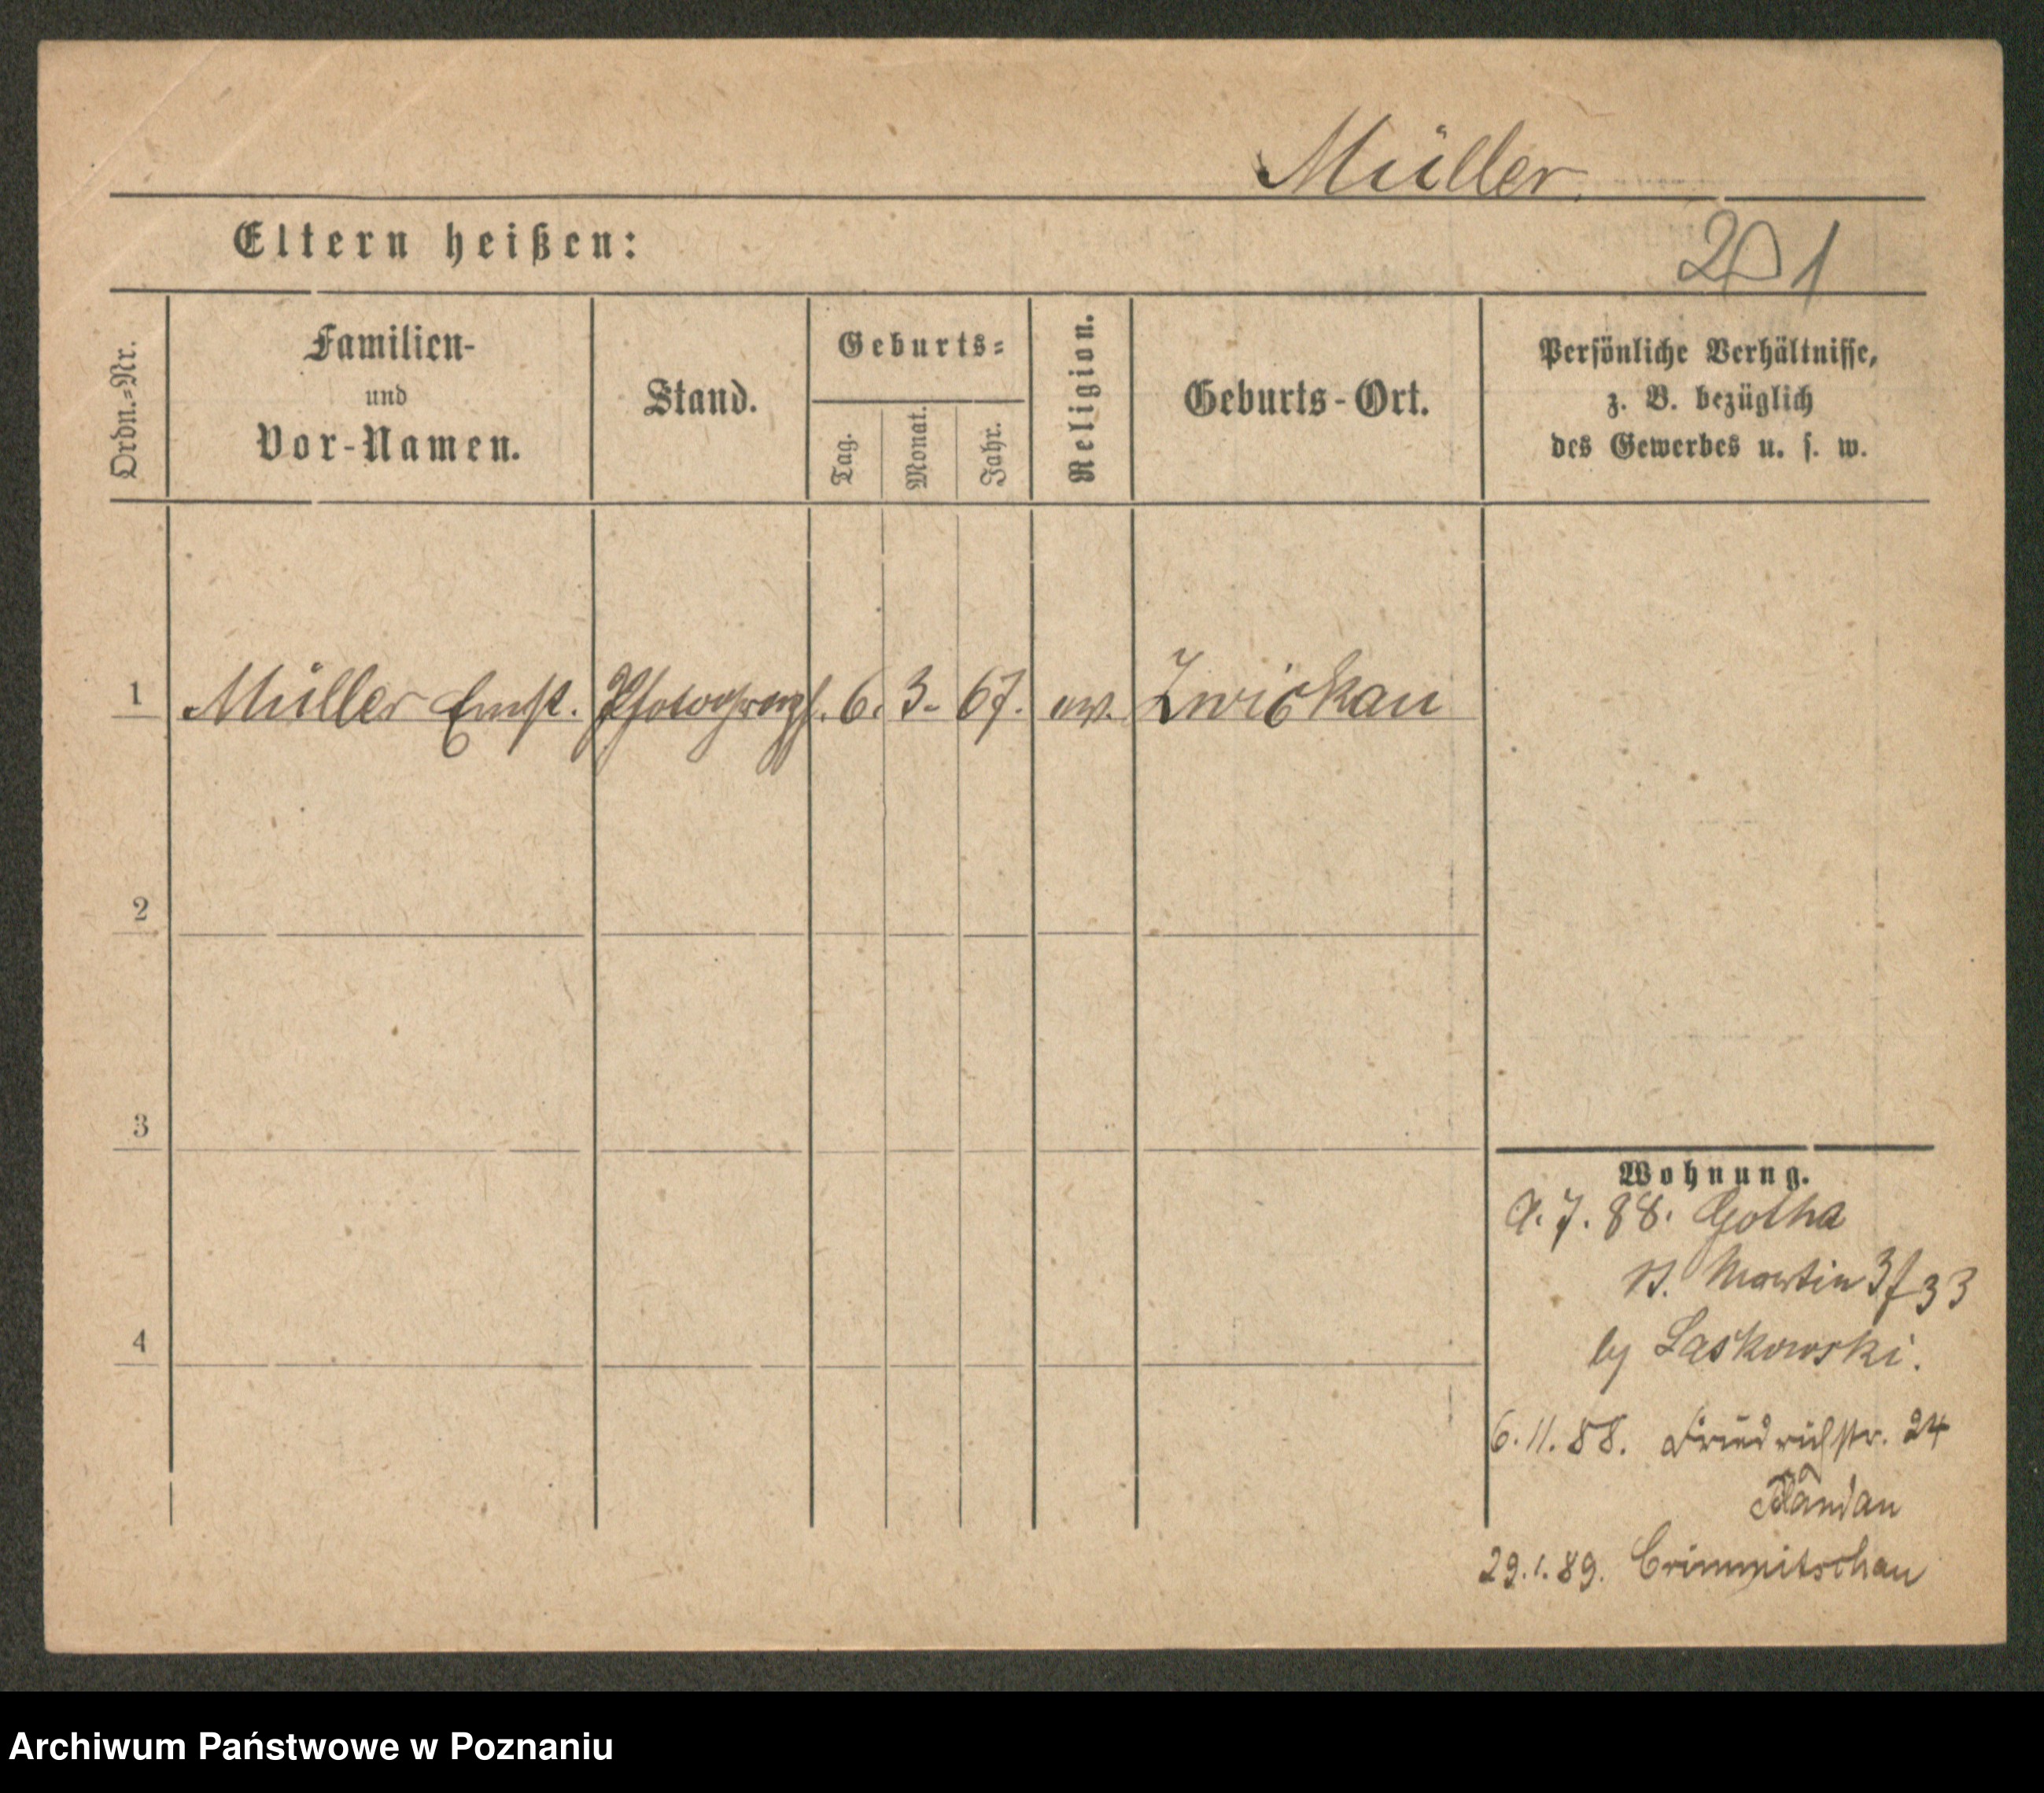 Müller.
Eltern heißen:
201
Ordn.-Nr.
Familien-
und
Vor-Namen.
Stand.
Geburts-
Tag.
Monat.
Jahr.
Religion.
Geburts-Ort.
Persönliche Verhältnisse,
z. B. bezüglich
des Gewerbes u. s. w.
1 Müller Ernst. Photograph. 6. 3. 67. ev. Zwickau
2
3
4
Wohnung.
9. 7. 88. Gotha
St. Martin 33
by Laskowski.
6. 11. 88. Friedrichstr. 24
29. 1. 89. Crimmitschau
Archiwum Państwowe w Poznaniu